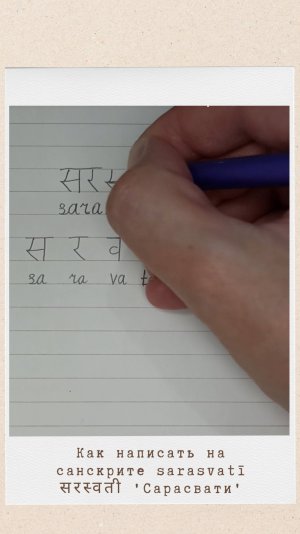 सरस
sara
स र व
sa ra va t
Как написать на
санскрите sarasvatī
सरस्वती 'Сарасвати'